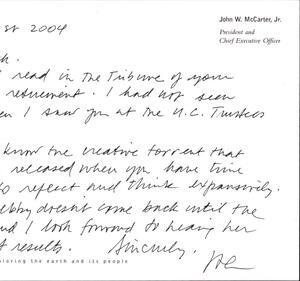 John W. McCarter, Jr.
President and
Chief Executive Officer
st 2004
I read in the Tribune of your
retirement. I had not seen
en I saw you at the U.C. Trustees
know the creative torrent that
released when you have time
to reflect and think expansively.
ebby doesn't come back until the
and I look forward to hearing her
t results. Sincerely,
ploring the earth and its people